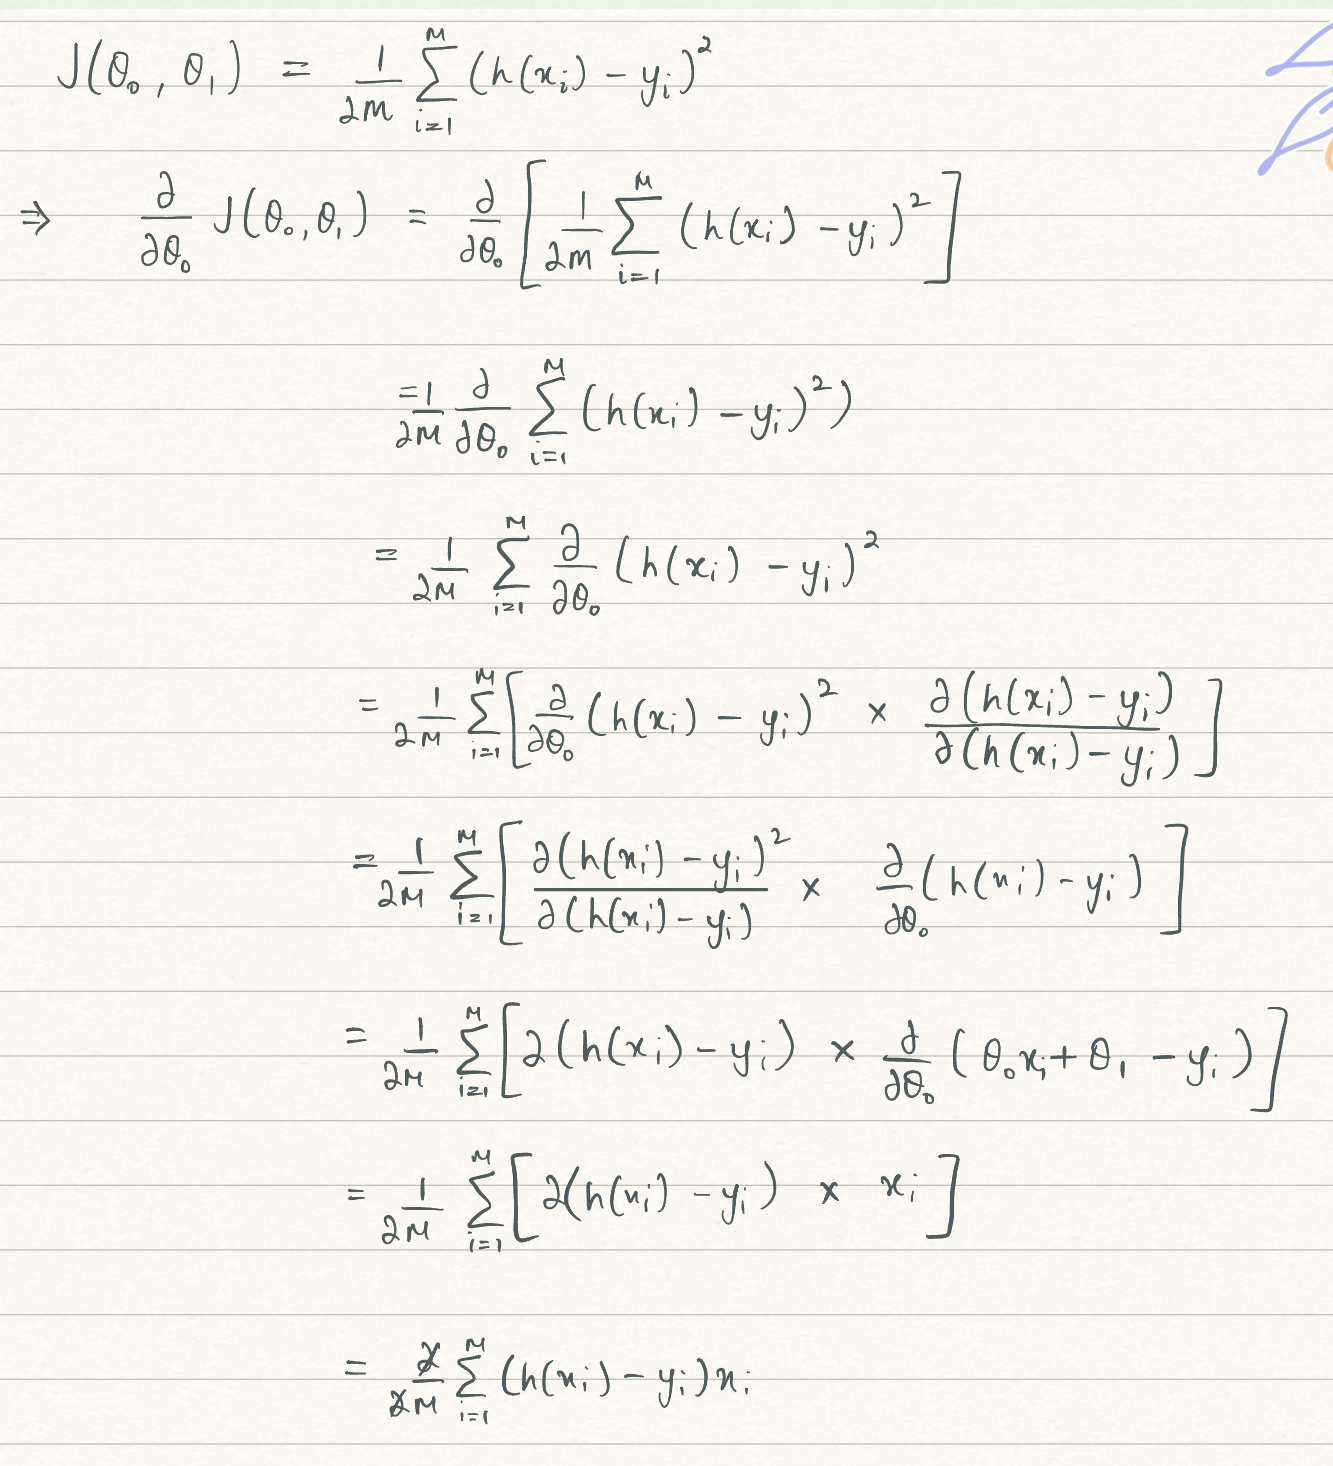 J(θ₀, θ₁) = 1/2m ∑_{i=1}^{m} (h(xᵢ) − yᵢ)²
⇒ ∂/∂θ₀ J(θ₀, θ₁) = ∂/∂θ₀ [1/2m ∑_{i=1}^{m} (h(xᵢ) − yᵢ)²]
= 1/2m ∂/∂θ₀ ∑_{i=1}^{m} (h(xᵢ) − yᵢ)²)
= 1/2m ∑_{i=1}^{m} ∂/∂θ₀ (h(xᵢ) − yᵢ)²
= 1/2m ∑_{i=1}^{m} [∂/∂θ₀ (h(xᵢ) − yᵢ)² × ∂(h(xᵢ) − yᵢ)/∂(h(xᵢ) − yᵢ)]
= 1/2m ∑_{i=1}^{m} [∂(h(xᵢ) − yᵢ)²/∂(h(xᵢ) − yᵢ) × ∂/∂θ₀ (h(xᵢ) − yᵢ)]
= 1/2m ∑_{i=1}^{m} [2(h(xᵢ) − yᵢ) × ∂/∂θ₀ (θ₀xᵢ + θ₁ − yᵢ)]
= 1/2m ∑_{i=1}^{m} [2(h(xᵢ) − yᵢ) × xᵢ]
= 2/2m ∑_{i=1}^{m} (h(xᵢ) − yᵢ)xᵢ